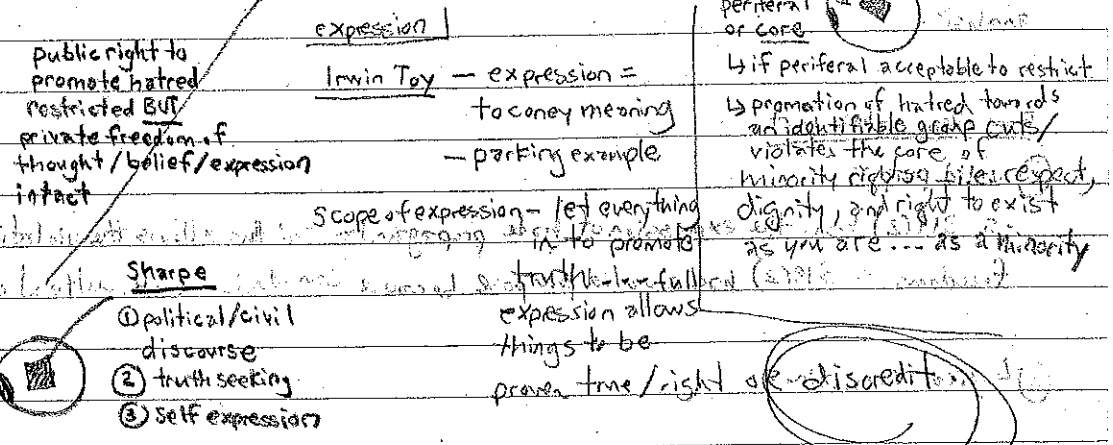 public right to
promote hatred
restricted BUT
private freedom of
thought/belief/expression
intact
Sharpe
① political/civil
discourse
② truth seeking
③ Self expression
expression
Irwin Toy — expression =
to coney meaning
— parking example
Scope of expression — let everything
in to promote
truth
expession allows
things to be
proven true/right or discredit
periferal
or core
↳ if periferal acceptable to restrict
↳ promotion of hatred towards
an identifiable group cuts/
violates the core of
minority respect,
dignity, and right to exist
as you are ... as a minority